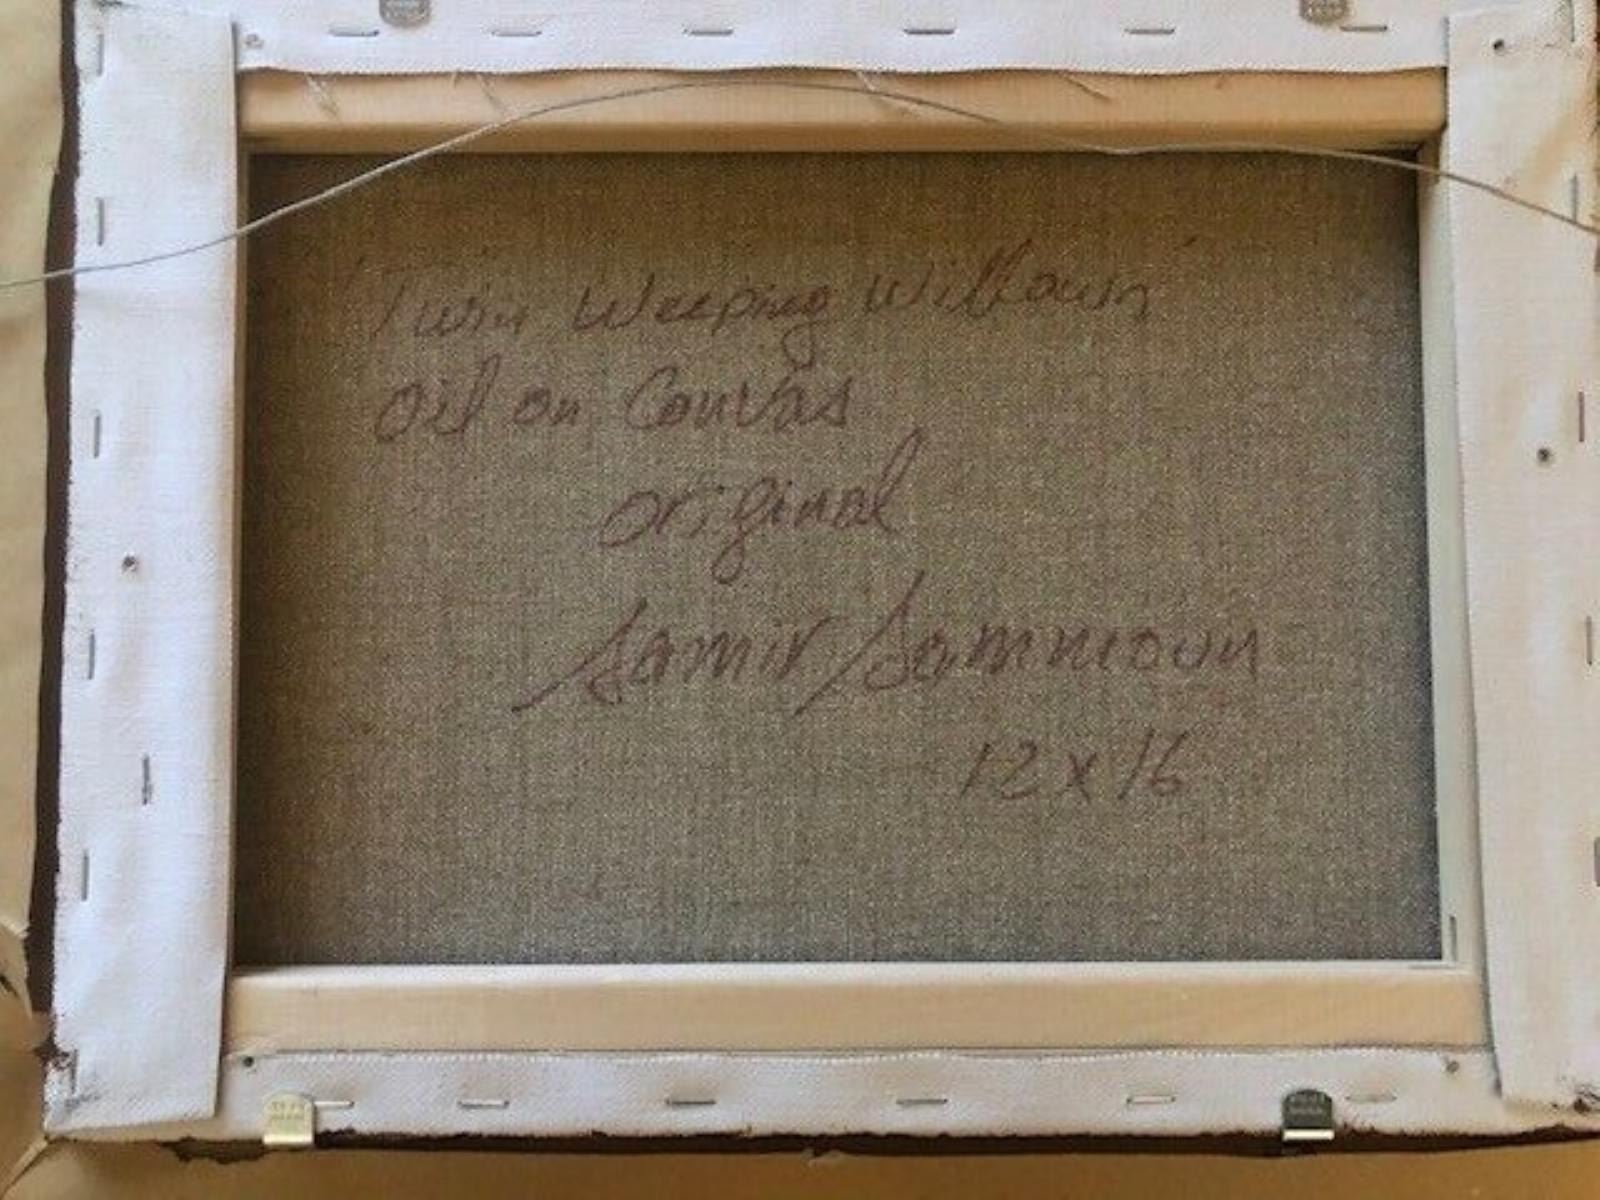 "Twin Weeping Willows"
Oil on Canvas
original
Samir Sammoun
12x16